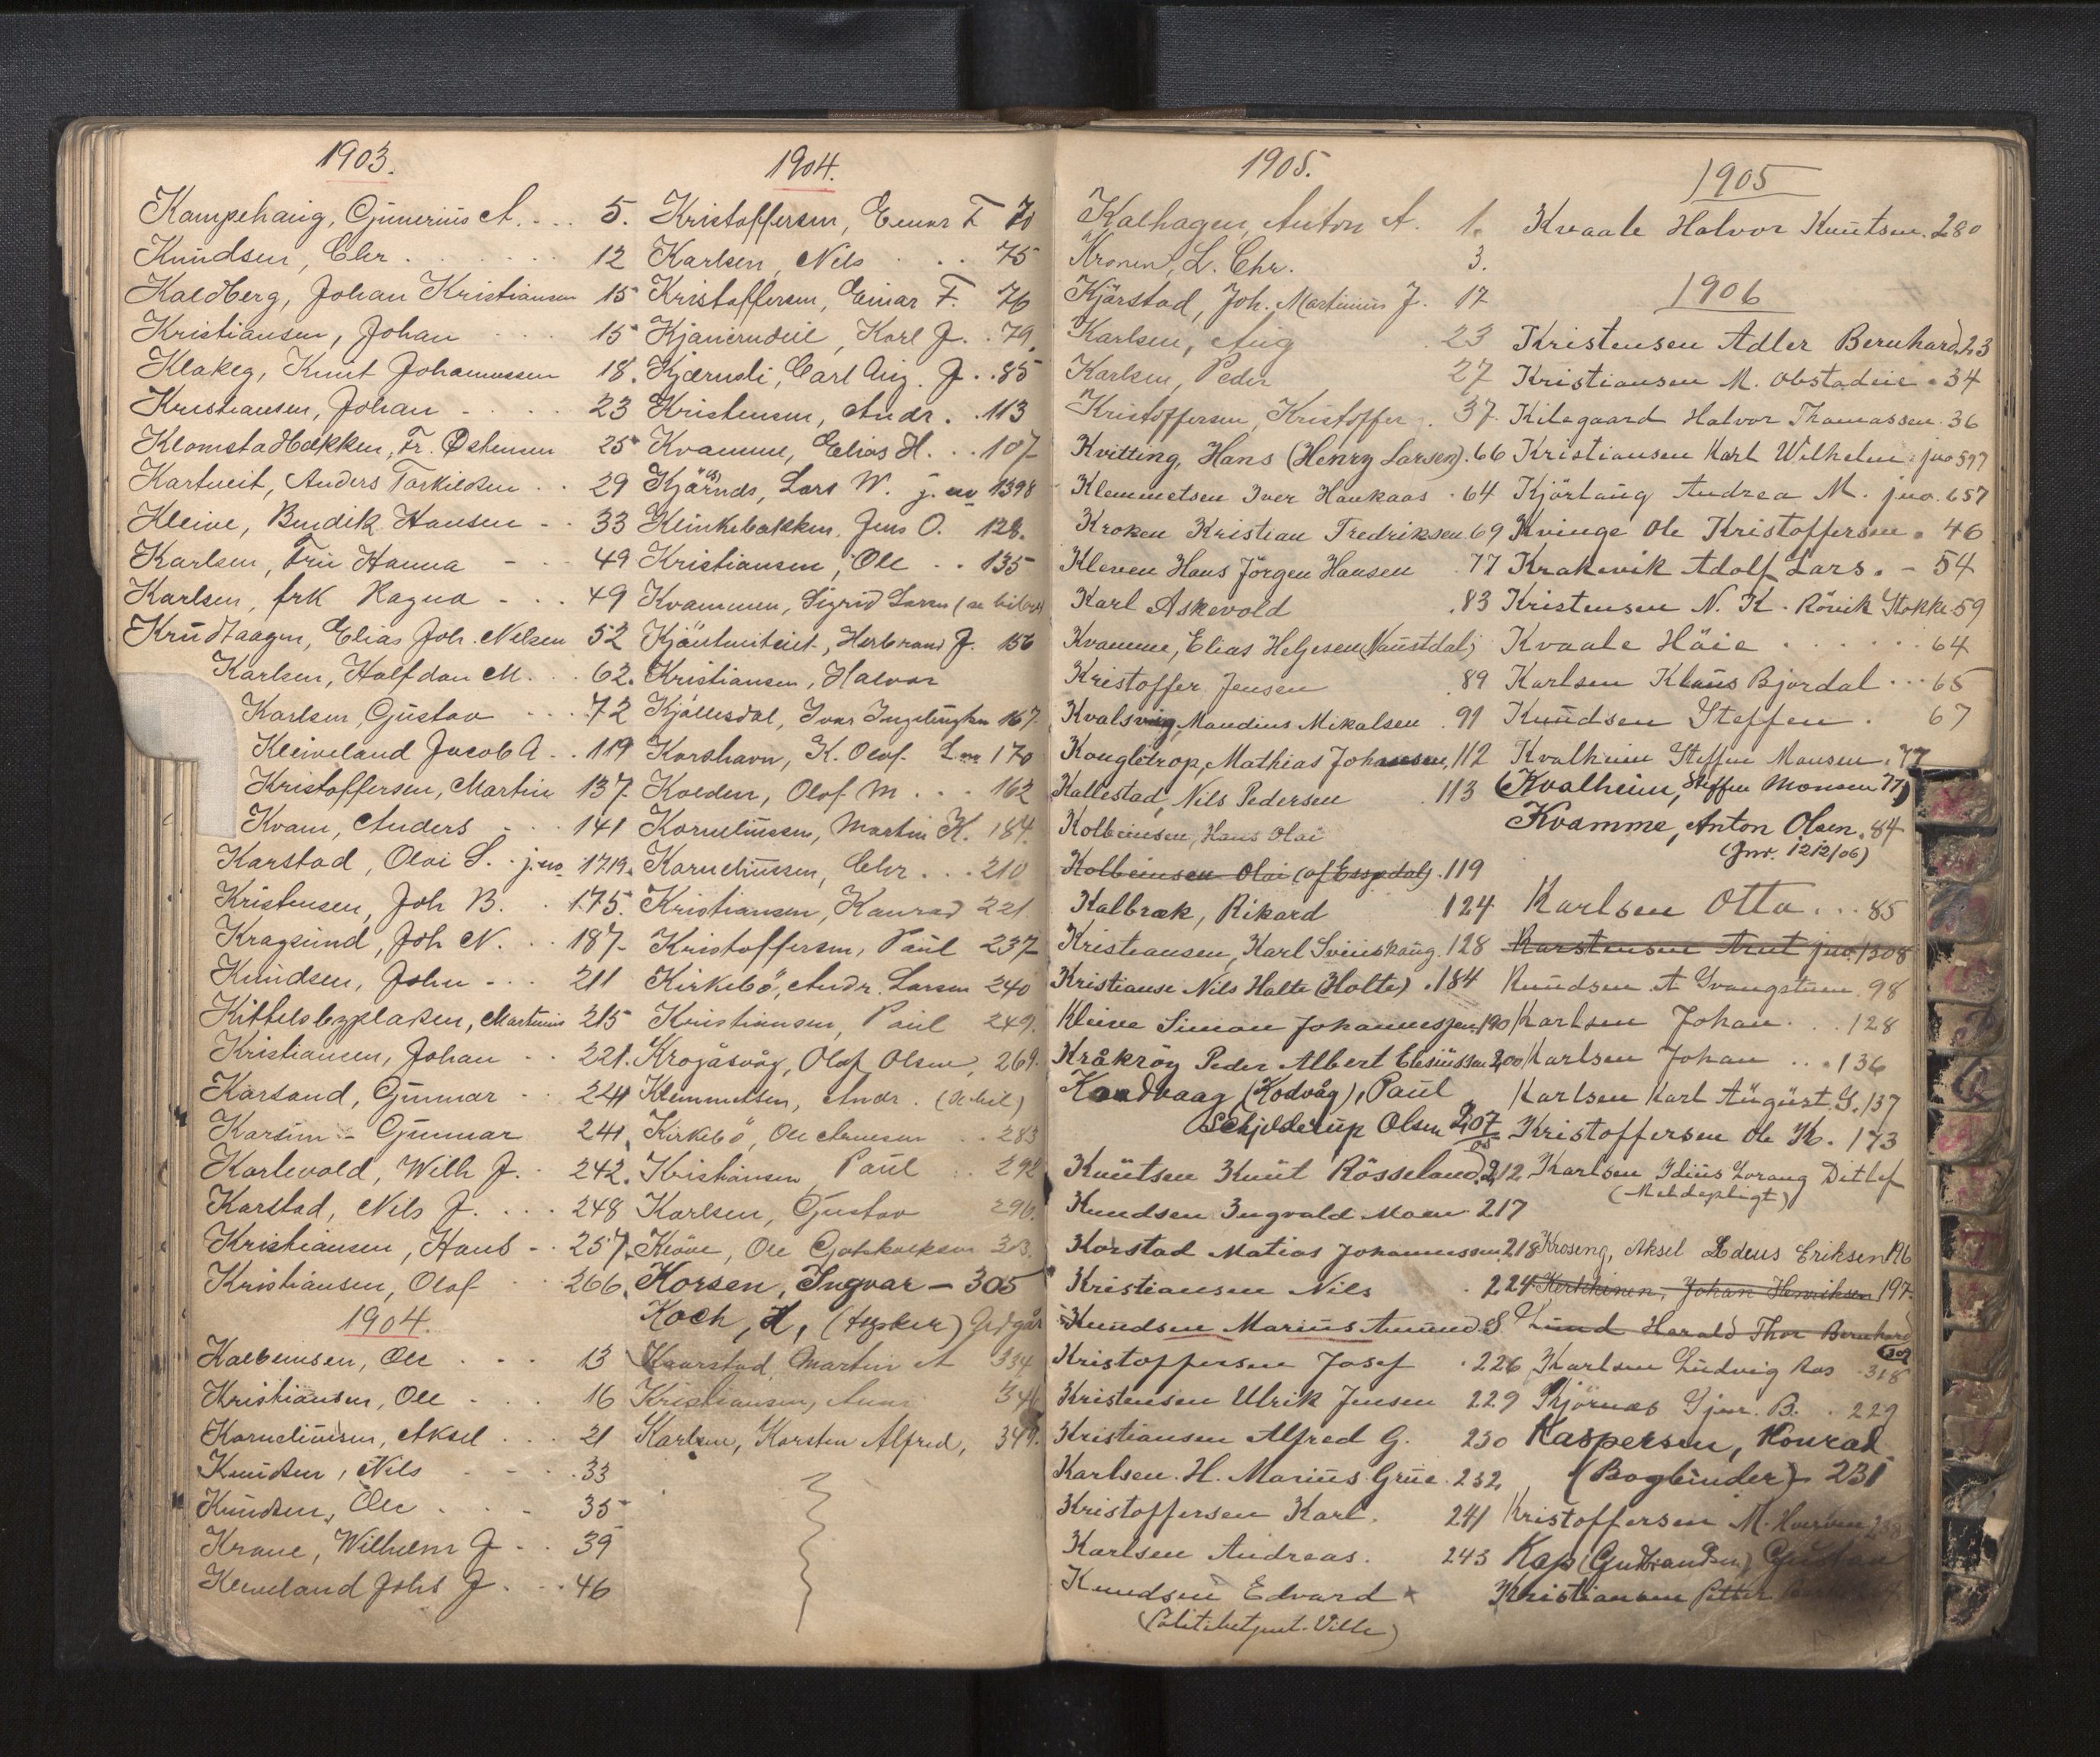 1903.
Kampehaug, Gunerius A. . . . 5.
Knudsen, Chr . . . . . . 12
Kaldberg, Johan Kristiansen 15
Kristiansen, Johan . . . 15
Klakeg, Knut Johannessen 18.
Kristiansen, Johan - . . . 23
Klomstadbakken, Fr. Østensen 25
Kartveit, Anders Torkildsen . . 29
Kleive, Bendik Hansen - . 33
Karlsen, Fru Hanna - . . 49
Karlsen, frk Ragna - . . 49
Krudtaagen, Elias Joh. Nilsen 52
Karlsen, Halfdan M. . . 62.
Karlsen, Gustav . . . 72
Kleiveland Jacob A . . 119
Kristoffersen, Martin 137
Kvam, Anders - . . 141
Karstad, Olai S. . j.no 1719.
Kristensen, Joh B. . 175.
Kragsund, Joh N. . . 187-
Knudsen, John - . . 211
Kittelsbyplassen, Martinius 215
Kristiansen, Johan . . 221.
Karsand, Gunnar . . 241
Karsim - Gunnar 241.
Karlevold, Wilh J. . 242.
Karstad, Nils J. . . . 248
Kristiansen, Hans - . 257.
Kristiansen, Olaf . . 266.
1904.
Kolbeinsen, Ole . . . 13
Kristiansen, Ole . . . 16
Korneliussen, Aksel . . . 21
Knudsen, Nils . - . . 33
Knudsen, Ole . . - 35
Krane, Wilhelm J - . . 39
Kleiveland Johs J. . . . 46
1904.
Kristoffersen, Einar F 70
Karlsen, Nils . . . 75
Kristoffersen, Einar F. 76
Karl J. . 79.
Kjærnsli, Carl Aug. J. . . 85
Kristensen, Andr. . . 113
Kvamme, Elias H. . . . 107
Lars W. j. no 1398
Klinkebakken, Jens O. 128.
Kristiansen, Ole . . 135
Kvammen, Sigrid Larsen
Herbrand J. 156
Kristiansen, Halvor
Kjøllesdal, Ivar 167.
Korshavn, K. Olaf. 170
Kolden, Olof M . . . 162
Korneliussen, Martin K. 184.
Korneliussen, Chr . . . 210
Kristiansen, Konrad 221
Kristoffersen, Paul 237
Kirkebö, Andr. Larsen 240
Kristiansen, Paul 249.
Krogåsvåg, Olaf Olsen, 269.
Klemmetsen, Andr.
Kirkebö, Ole Arnesen . . 283
Kristiansen Paul . . 292
Karlsen, Gustav 296.
Kløve, Ole
Korsen, Ingvar - 305
Koch, H,
Kaarstad, Martin A 334
Kristiansen,
Karlsen, Karsten Alfred, 349.
1905.
Kalhagen, Anton A. 1.
Kronen, L. Chr. 3.
Kjärstad, Joh. Martinus J. 17
Karlsen, Aug . 23
Karlsen, Peder 27
Kristoffersen, Kristoffer . 37.
Kvitting, Hans (Henry Larsen). 66
Klemmetsen Iver Haukaas . 64
Kroken Kristian Fredriksen 69
Kleven Hans Jörgen Hansen . 77
Karl Askevold . 83
Kvamme, Elias Helgesen (Naustdal)
Kristoffer Jensen . 89
Kvalsvig, Maudius Mikalsen . 91
Kougletrop, Mathias Johansen, 112
Kallestad, Nils Pedersen . 113
Kolbeinsen, Hans Olai
Kolbeinsen Olai (af Essedal). 119
Kalbræk, Rikard . 124
Kristiansen, Karl Svenskaug. 128
Kristianse Nils Halte (Holte) . 184
Kleive Simon Johannesjen. 190
Kråkröy Peder Albert 200
Kandvaag (Kodvåg), Paul
Schjelderup Olsen 207
Knütsen Knüt Rösseland. 212
Knudsen Ingvald Moen 217
Korstad Matias Johannessen 218
Kristiansen Nils . 224
Knudsen Marius Amund S.
Kristoffersen Josef . 226
Kristensen Ulrik Jensen 229
Kristiansen Alfred G. 230
Karlsen. H. Marius Grue . 232
Kristoffersen Karl. 241
Karlsen Andreas. 243
Knudsen Edvard x
1905
Kvaale Halvor Knutsen . 280
1906
Kristensen Adler Bernhard, 23
Kristiansen M. Obstadeie . 34
Kilegaard Halvor Thomassen . 36
Kristiansen Karl Wilhelm . jno 597
Kjörlaug Andrea M. jno. 657
Kvinge Ole Kristoffersen . 46
Krakevik Adolf Lars. - 54
Kristensen N. K. Rövik Stokke 59
Kvaale Häie . . . . . . 64
Karlsen Klaus Bjordal . . . 65
Knudsen Steffen . 67
Kvalheim Steffen Monsen . 77
(Kvalheim, Steffen Monsen 77)
Kvamme, Anton Olsen. 84
(Jnr. 1212/06)
Karlsen Otto . . . 85
Karstensen Arnt jno. 1308
Knudsen A 98
Karlsen Johan . . . 128
Karlsen Johan . . . 136
Karlsen Karl August G. 137
Kristoffersen Ole K. 173
Karlsen Ditlef
(Meldepligt)
Kroseng, Aksel Edeus Eriksen 196
Kerkkinen, Johan Henriksen 197.
Lund Harald Thor Bernhard
309
Karlsen Ludvig Aas . 318
Kjörnæs Gjer. B. . 229
Kaspersen, Konrad
(Bogbinder) - 231
Kristoffersen M.
Kap (Gudbrandsen) Gustav
Kristiansen Petter